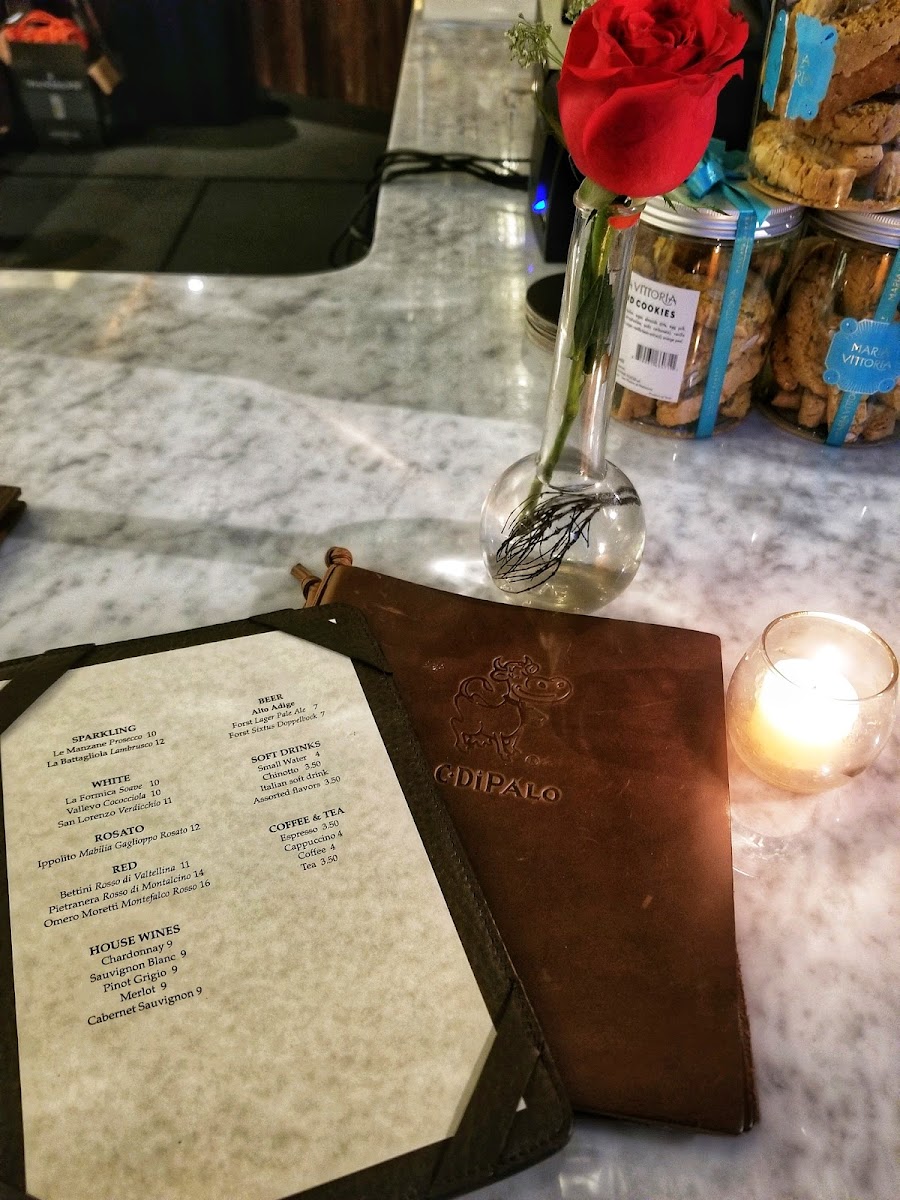 SPARKLING
Le Manzane Prosecco 10
La Battagliola Lambrusco 12
WHITE
La Formica Soave 10
Vallevo Cococciola 10
San Lorenzo Verdicchio 11
ROSATO
Ippolito Mabilia Gaglioppo Rosato 12
RED
Bettini Rosso di Valtellina 11
Pietranera Rosso di Montalcino 14
Omero Moretti Montefalco Rosso 16
HOUSE WINES
Chardonnay 9
Sauvignon Blanc 9
Pinot Grigio 9
Merlot 9
Cabernet Sauvignon 9
BEER
Alto Adige
Forst Lager Pale Ale 7
Forst Sixtus Doppelbock 7
SOFT DRINKS
Small Water 4
Chinotto 3.50
Italian soft drink
Assorted flavors 3.50
COFFEE & TEA
Espresso 3.50
Cappuccino 4
Coffee 4
Tea 3.50
C·DiPALO
VITTORIA
COOKIES
VITTORIA